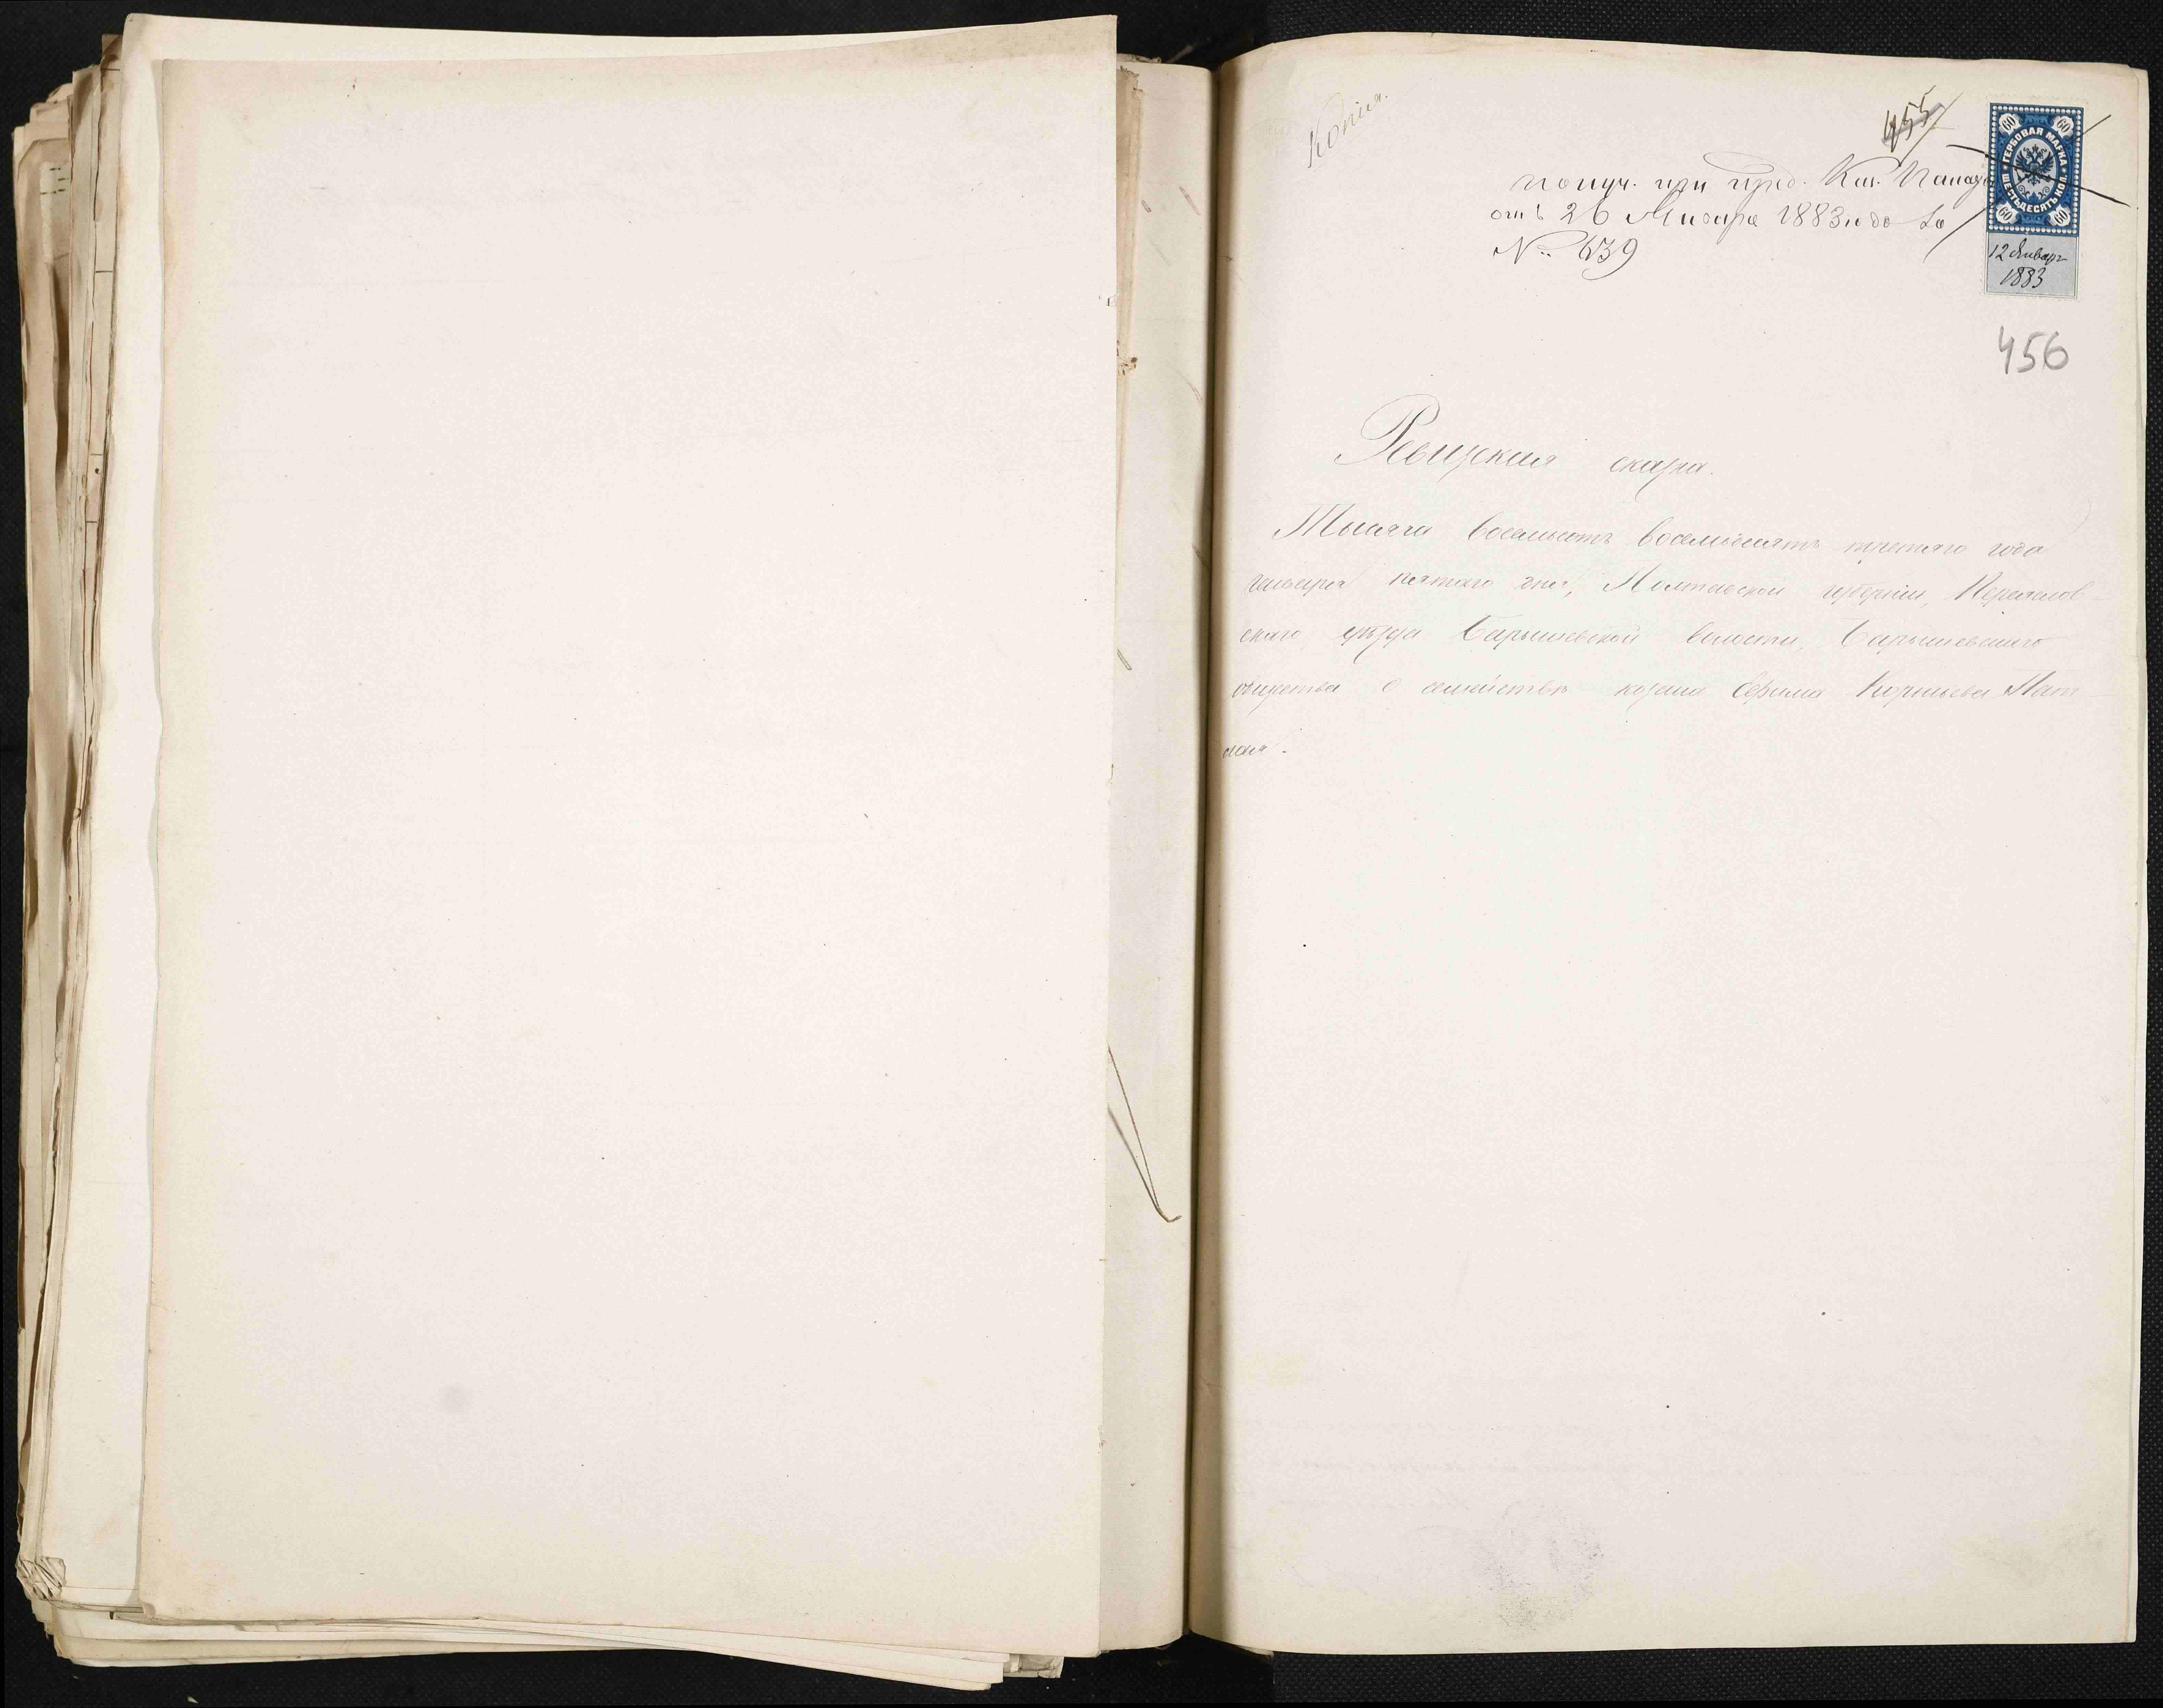 Копія.
455
получ. при пред. Каз. Палаты
отъ 26 Января 1883 года за
№ 639
60 60
ГЕРБОВАЯ МАРКА
ШЕСТЬДЕСЯТЪ КОП.
60 60
12 Января
1883
456
Ревизская сказка.
Тысяча восемьсотъ восемьдесятъ третяго года
января пятаго дня, Полтавской губерніи, Переяслов-
скаго уѣзда Барышевской волости, Барышевскаго
общества о семействѣ козака Ефима Корнѣева